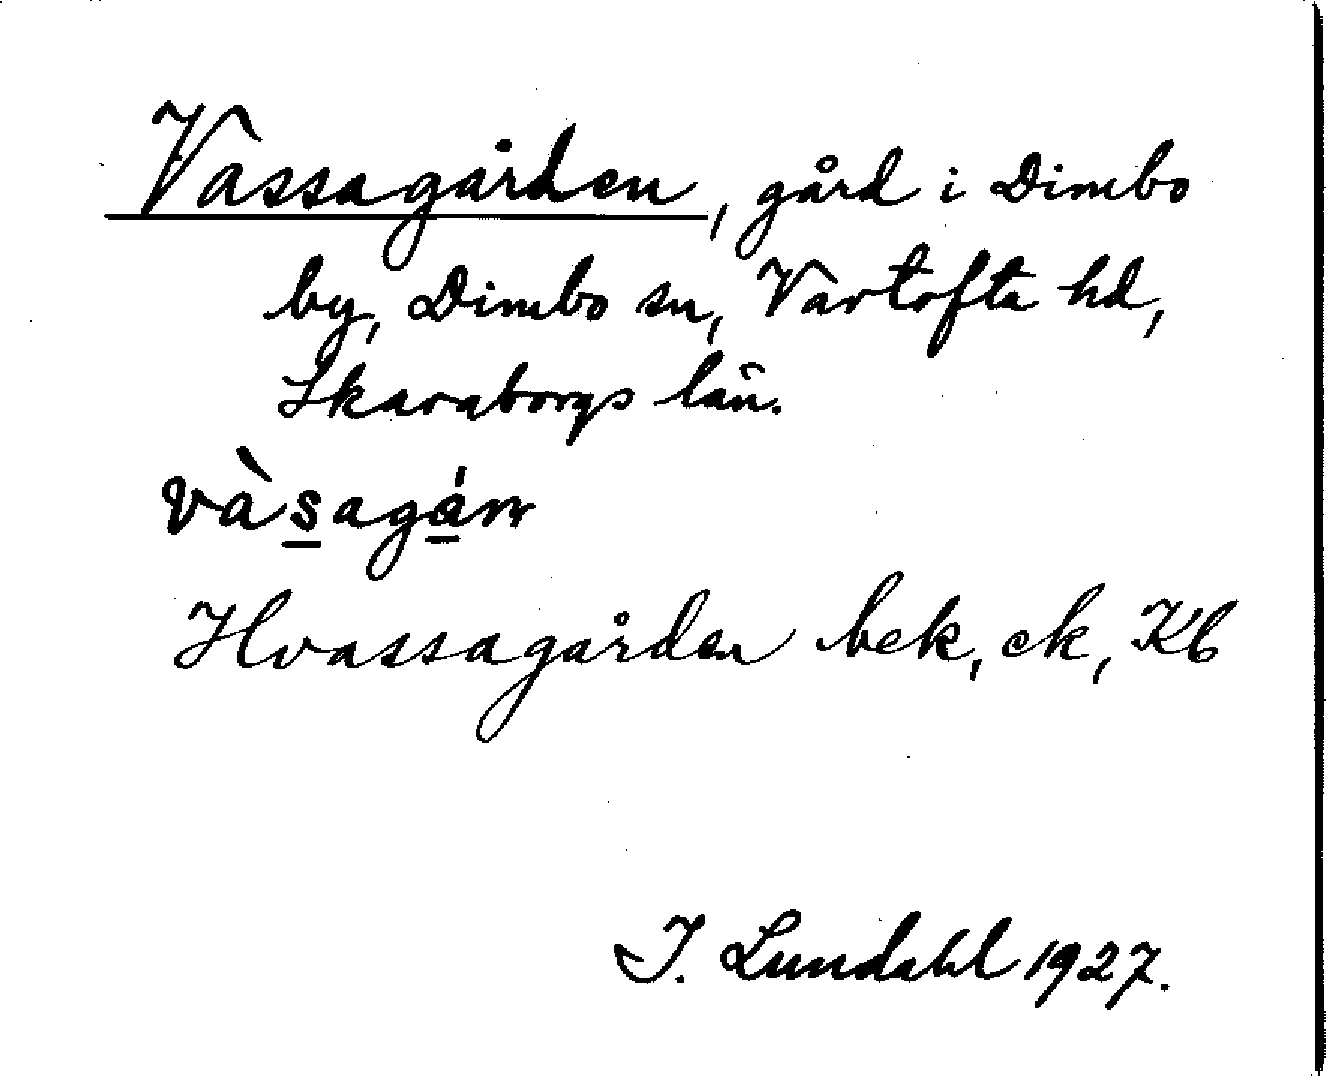 Vassagården, gård i Dimbo
by, Dimbo sn, Vartofta hd,
Skaraborgs län.
vàsagánr
Hvassagården bek, ek, Kb
I. Lundahl 1927.